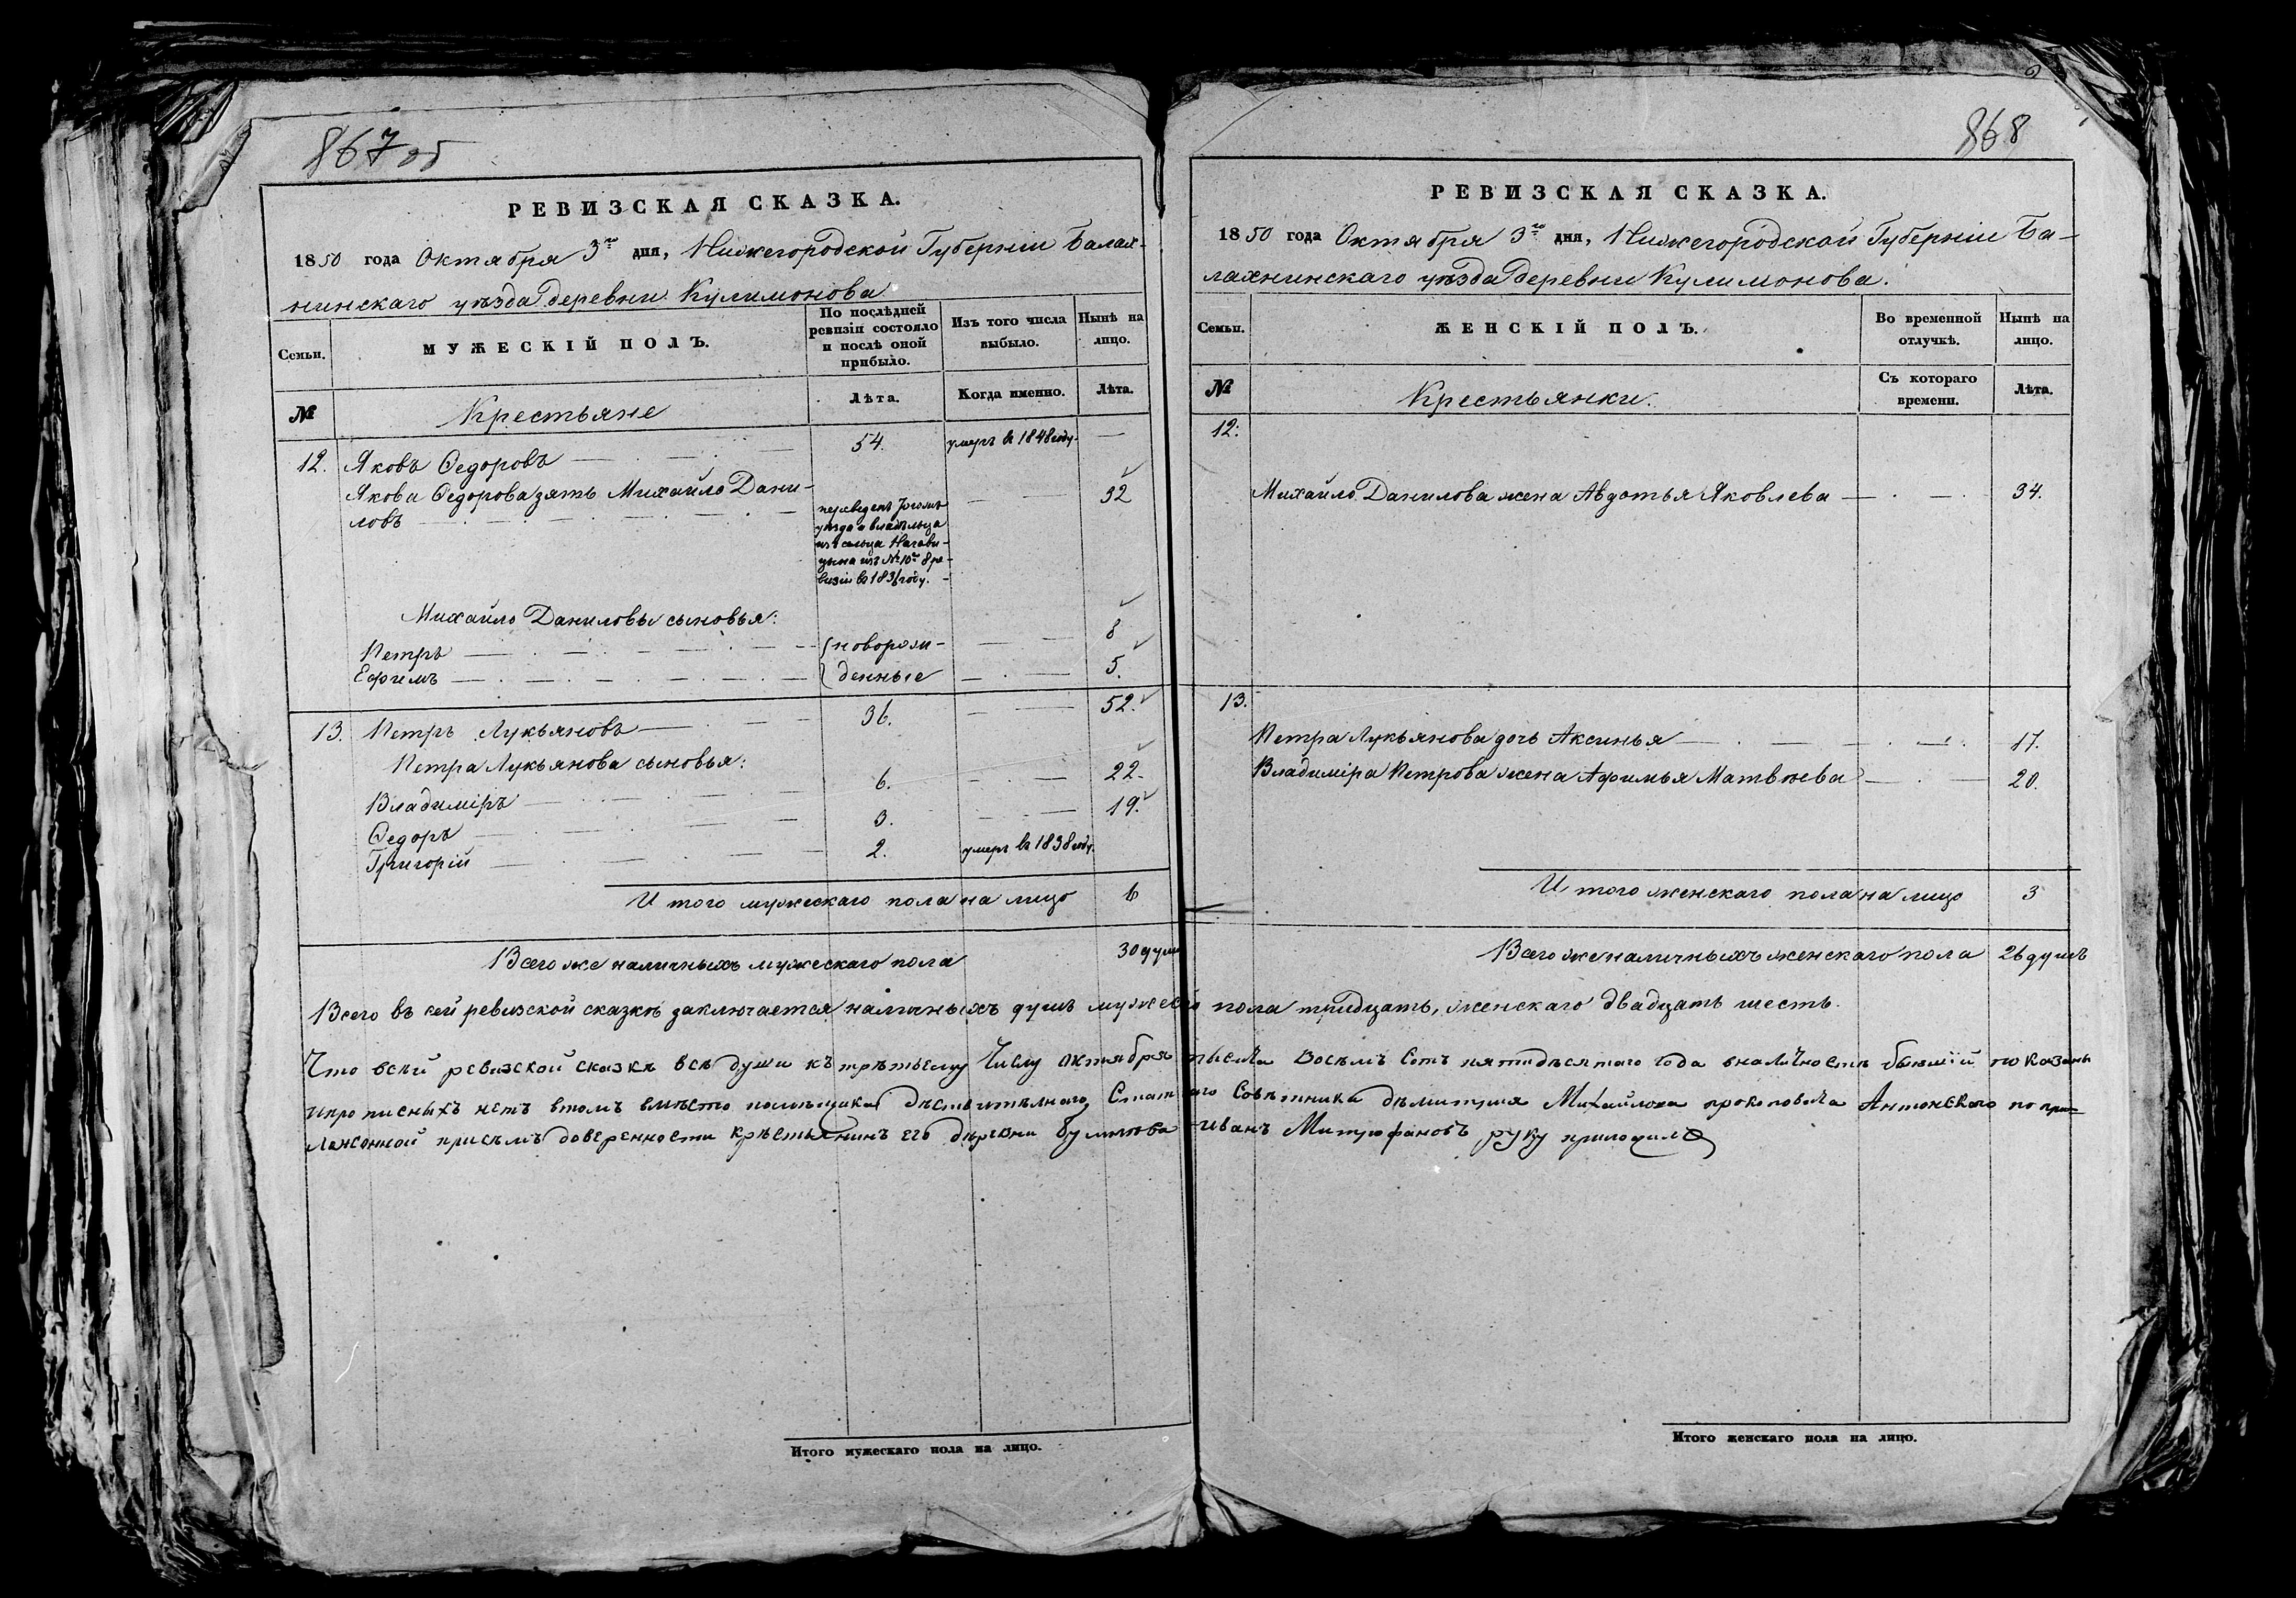 867 об
РЕВИЗСКАЯ СКАЗКА.
1850 года Октября 3го дня, Нижегородской Губерніи Балах-
нинскаго уѣзда деревни Кулимонова
Семьи.
МУЖЕСКІЙ ПОЛЪ.
По послѣдней
ревизіи состояло
и послѣ оной
прибыло.
Изъ того числа
выбыло.
Нынѣ на
лицо.
№
Крестьяне
Лѣта.
Когда именно.
Лѣта.
12. Яковъ Ѳедоровъ 54. умеръ въ 1848 году. —
Якова Ѳедорова зять Михайло Дани- 32
ловъ
переведенъ
уѣзда и владѣльца
изъ сельца
из № 10го 8 ре-
визіи въ 1836 году.
Михайло Даниловы сыновья:
Петръ новорож- 8
Ефимъ денные 5.
13. Петръ Лукьяновъ 36. 52.
Петра Лукьянова сыновья:
Владиміръ 6. 22.
Ѳедоръ 3. 19.
Григорій 2. умеръ въ 1838 году.
Итого мужескаго пола на лицо 6
Всего же наличныхъ мужескаго пола 30 душъ
868
РЕВИЗСКАЯ СКАЗКА.
1850 года Октября 3го дня, Нижегородской Губерніи Ба-
лахнинскаго уѣзда деревни Кулимонова.
Семьи.
ЖЕНСКІЙ ПОЛЪ.
Во временной
отлучкѣ.
Нынѣ на
лицо.
№
Крестьянки.
Съ котораго
времени.
Лѣта.
12.
Михайло Данилова жена Авдотья Яковлева 34.
13.
Петра Лукьянова дочь Аксинья 17.
Владиміра Петрова жена Афимья Матвѣева 20.
Итого женскаго пола на лицо 3
Всего же наличныхъ женскаго пола 26 душъ
Всего въ сей ревизской сказкѣ заключается наличныхъ душъ мужеска пола тридцать, женскаго двадцать шесть.
Что всѣй ревизской сказкѣ всѣ души къ трѣтьему Числу октября тысеча Восѣмъ Сотъ пятидѣсятаго года вналичностѣ бывшіи показаны
ипрописныхъ нетъ втомъ вмѣсто помѣщика дѣствитѣлнаго Статскаго Совѣтника дѣмитрия Михайлоча прокоповича Антонскаго по при-
ложенной присѣмъ доверенности крѣстьянинъ его дѣревни иванъ Митрофановъ руку приложилъ
Итого мужескаго пола на лицо.
Итого женскаго пола на лицо.